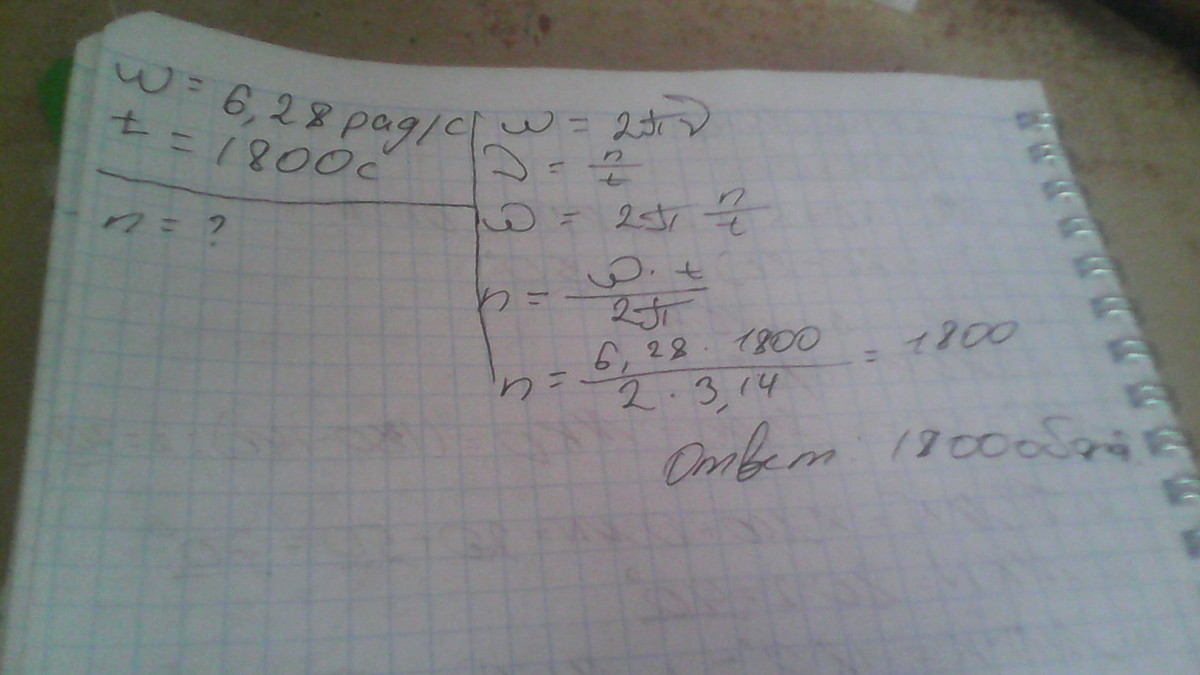 ω = 6,28 рад/с
t = 1800с
n = ?
ω = 2πν
ν = n/t
ω = 2π n/t
n = ω · t / 2π
n = 6,28 · 1800 / 2 · 3,14 = 1800
Ответ: 1800